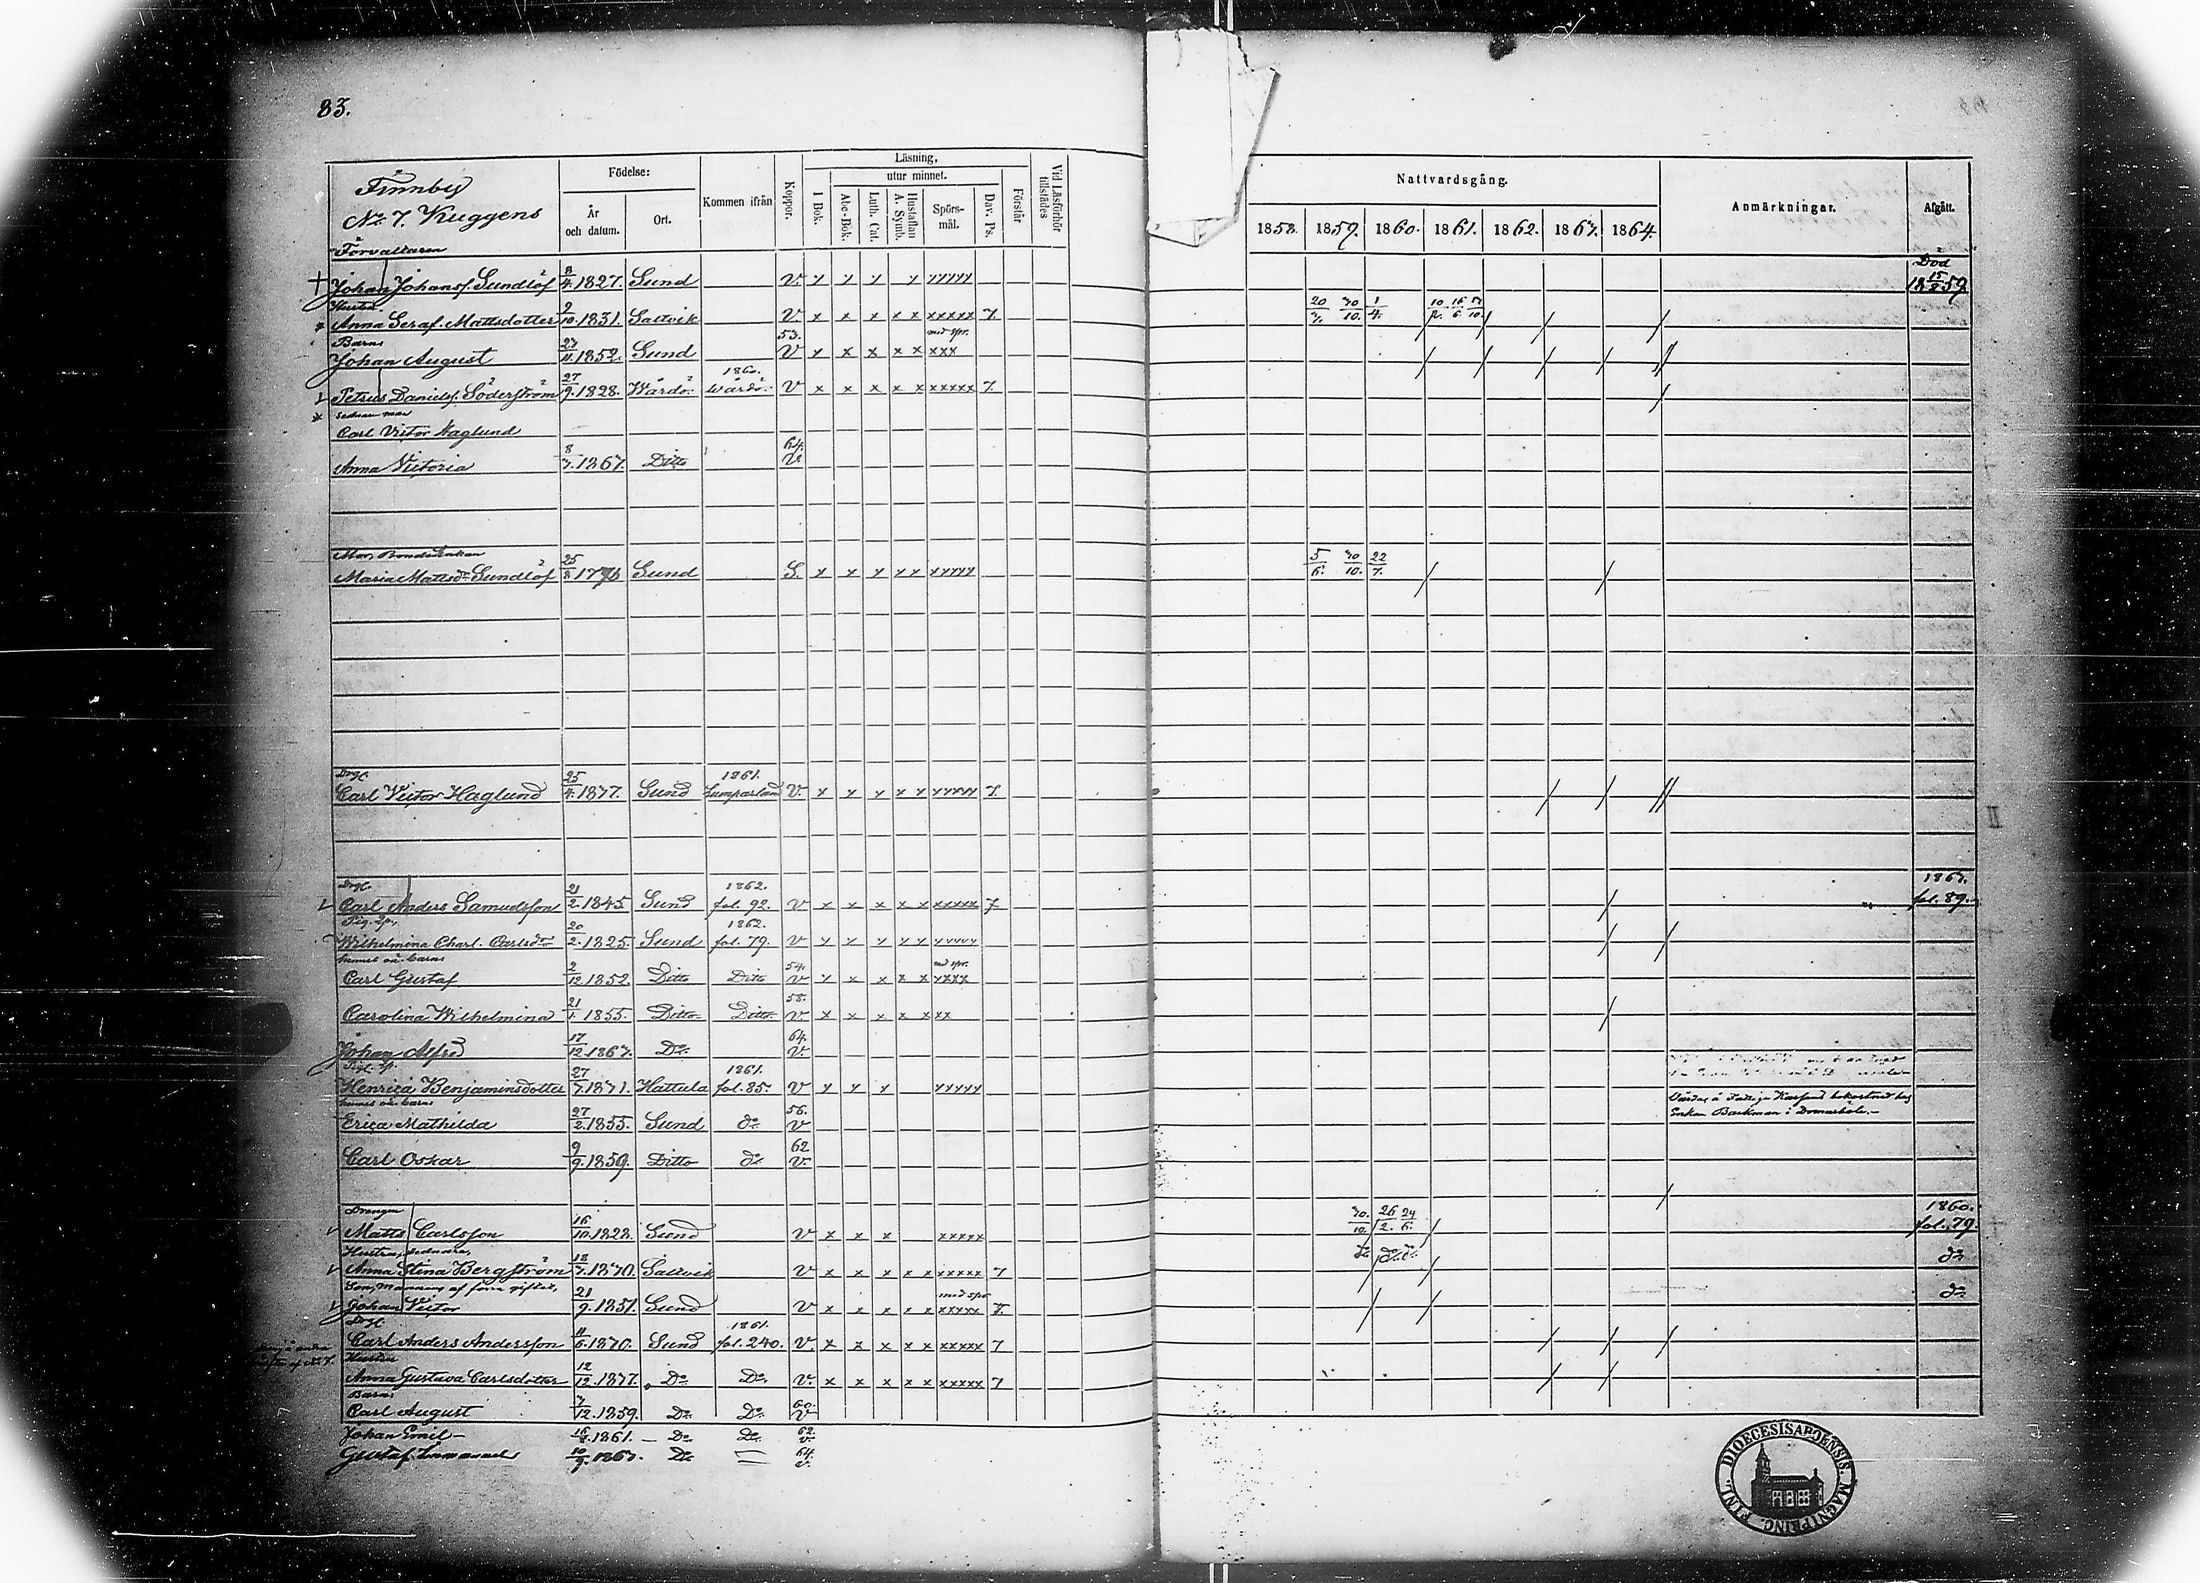 83.
Finnby
No 7. Kuggens
Födelse:
År och datum.
Ort.
Kommen ifrån
Koppor.
Läsning,
utur minnet.
I Bok.
Abc-Bok.
Luth. Cat.
Hustaflan A. Symb.
Spörsmål.
Dav. Ps.
Förstår
Vid Läsförhör tillstädes
Nattvardsgång.
1858. 1859. 1860. 1861. 1862. 1863. 1864.
Anmärkningar.
Afgått.
Förvaltaren
Johan Johansf. Sundlöf 8/4. 1827. Sund V. Död 18 15/2 59
Hustru
Anna Seraf. Mattsdotter 9/10. 1831. Saltvik V. 7. 20/7. 30/10. 1/4. 10/2. 16/6
Barn
53. med spr.
Johan August 23/11. 1852. Sund V
1860.
Petrus Daniels. Söderström 27/9. 1828. Wårdö Wårdö V 7.
sednare man
Carl Victor Haglund
64.
Anna Victoria 8/7. 1863. Ditto V.
Mor, Bondeenkan
Maria Mattsdr Sundlöf 25/8 Sund S. 5/6. 30/10. 22/7.
Drgn.
1861.
Carl Victor Haglund 25/4. 1837. Sund Lumparland V. 7.
Drgn.
1862. 1863.
Carl Anders Samuelsson 21/2. 1845 Sund fol. 92. V 7 fol. 89.
Pig.
1862.
Wilhelmina Charl. Carlsdr 20/2. 1825. Sund fol. 79. V
hennes oä. barn
54. med spr.
Carl Gustaf 2/12. 1852 Ditto Ditto V
58.
Carolina Wilhelmina 21/1. 1855. Ditto Ditto V.
64.
Johan Alfred 17/12. 1863. Do V.
1861.
Henrica Benjaminsdotter 27/7. 1831. Hattula fol. 85. V
hennes oä. barn
Vårdas å Fattiga
Enkan Backman i Domarböle.
56.
Erica Mathilda 27/2. 1855. Sund do V
62
Carl Oskar 9/9. 1859. Ditto do V.
Drängen
Matts Carlsson 16/10. 1828. Sund V 30/10. 26/2. 24/6. 1860. fol. 79.
Hustru, sednare,
Anna Stina Bergström 18/7. 1830. Saltvik V 7 do do do do
Son, mannens af förra giftet,
med spr.
Johan Victor 21/9. 1851. Sund V 7. do
Drgn.
1861.
Carl Anders Andersson 11/6. 1830. Sund fol. 240. V. 7
Hustru
Anna Gustava Carlsdotter 12/12. 1837. Do Do. V. 7
Barn
60.
Carl August 3/12. 1859. Do Do. V
62.
Johan Emil 1861. Do Do. V.
64.
Gustaf Emanuel 10/9. 1863. Do V.
DIOECESIS ABOËNSIS. MAGNI PRINC. FINL.